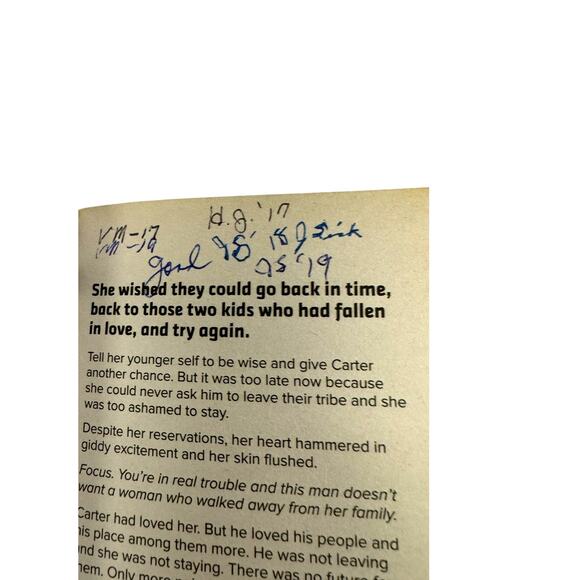 H.J. '17
KM-17
JS' 18 J Sisk
good JS '19
She wished they could go back in time,
back to those two kids who had fallen
in love, and try again.
Tell her younger self to be wise and give Carter
another chance. But it was too late now because
she could never ask him to leave their tribe and she
was too ashamed to stay.
Despite her reservations, her heart hammered in
giddy excitement and her skin flushed.
Focus. You're in real trouble and this man doesn't
want a woman who walked away from her family.
Carter had loved her. But he loved his people and
his place among them more. He was not leaving
and she was not staying. There was no future
them. Only more